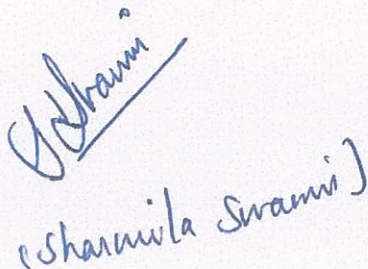 SSwami
(Sharmila Swami)